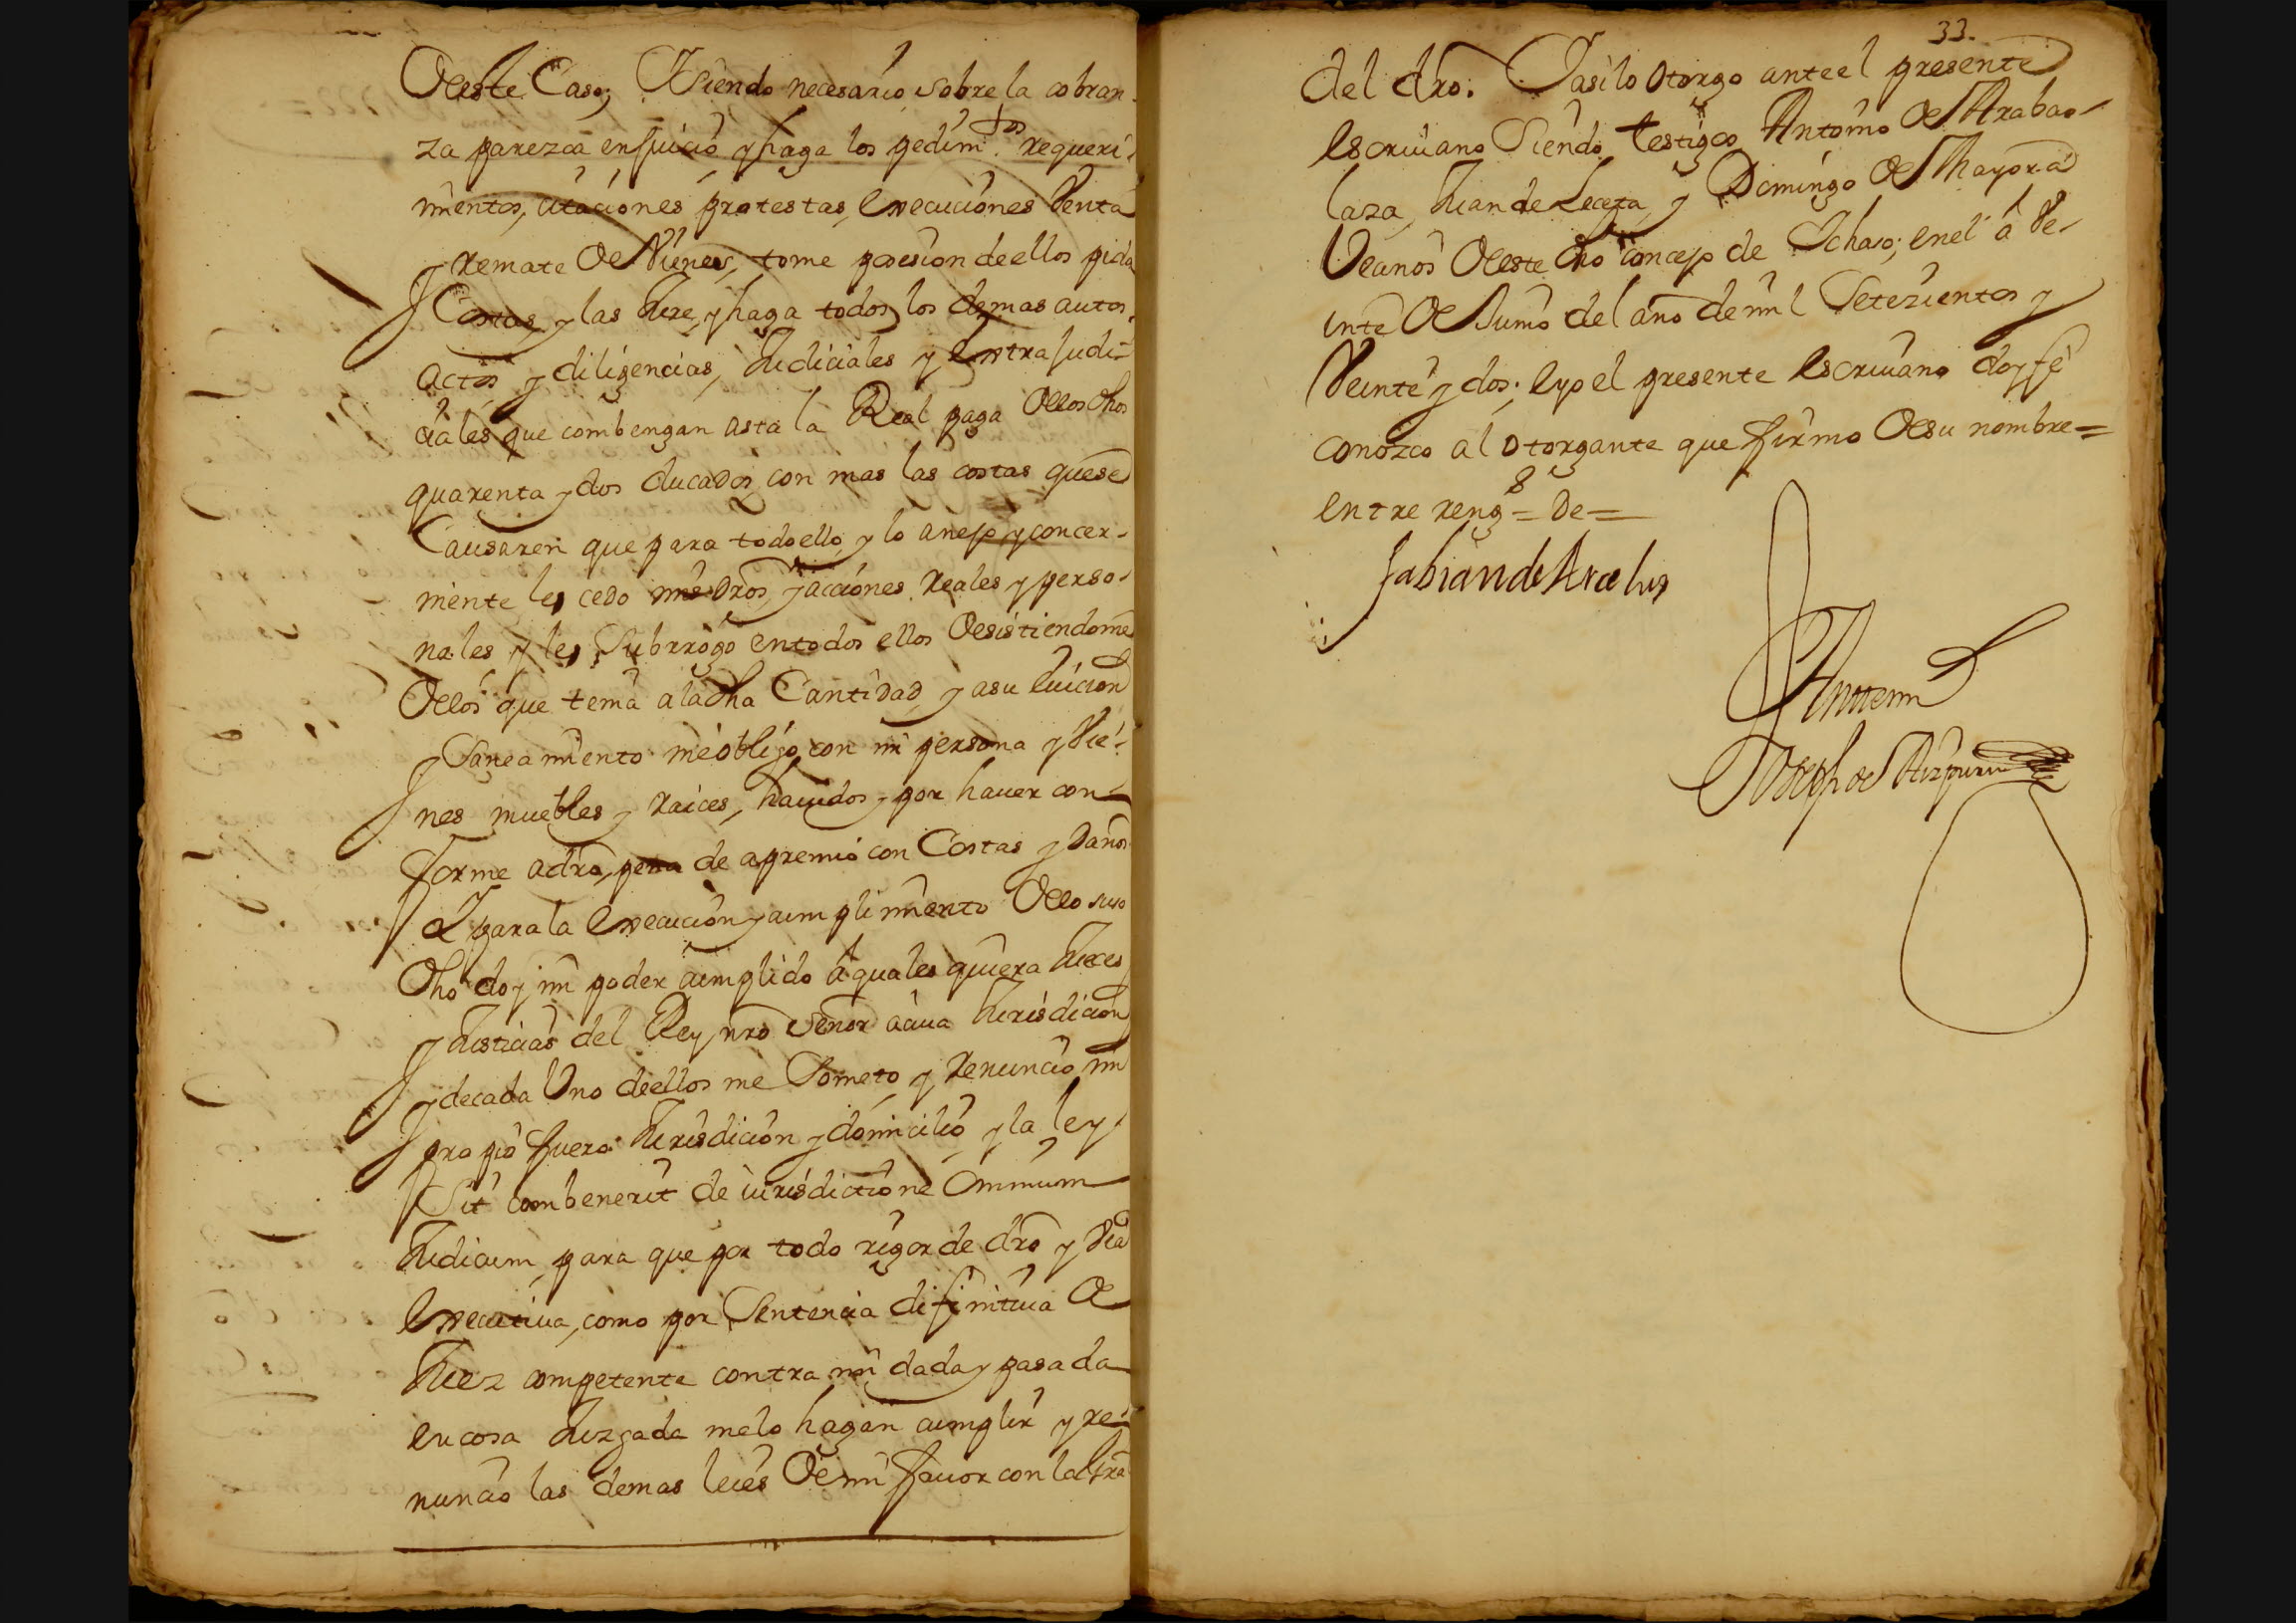 De este Caso; Y Siendo necesario sobre la cobran-
za parezca en juicio y haga los pedim.tos requeri-
mientos, citaciones protestas, execuciones Venta
y Remate De Vienes, tome posesion de ellos pida
Costas, y las Jure, y haga todos los demas autos
actos, y diligencias, Judiciales y extrajudi-
ciales que combengan asta la Real paga De los dhos
quarenta y dos ducados, con mas las costas que se
Causaren que para todo ello, y lo anejo, y concer-
niente, les cedo mis dros, y acciones Reales y perso-
nales y les Subrrogo en todos ellos Desistiendome
De los que tenia a la dha Cantidad, y a su Euicion
y Saneamiento me obligo, con mi persona y Vie-
nes muebles, y raices, hauidos, y por hauer con-
forme a dro, pena de apremio con Costas y Daños
Y para la Execucion y cumplimiento De lo suso
Dho doy mi poder cumplido a quales quiera Jueces
y Justicias del Rey nro Señor a cuia Jurisdicion
y de cada Uno de ellos me Someto, y Renuncio mi
propio fuero Jurisdicion y domicilio, y la ley
Sit combenerit de iurisdictione Omnium
Judicum, para que por todo rigor de dro y via
Executiua, como por Sentencia difinitiua De
Juez competente contra mi dada y pasada
en cosa Juzgada me lo hagan cumplir y re-
nuncio las demas leies De mi fauor con la Gral
33.
del dro. Y asi lo Otorgo ante el presente
escriuano Siendo testigos Antonio De Arabao-
laza, Juan de Leceta, y Domingo De Mayora
Vecinos De este dho concejo de Ichaso; en el a Ve-
inte De Junio del año de mil Setezientos y
Veinte y dos; e yo el presente escriuano doy fe
conozco al otorgante que firmo De su nombre =
entre reng.s = De =
fabian de Arcelus
Ante mi
Joseph de Aizpuru